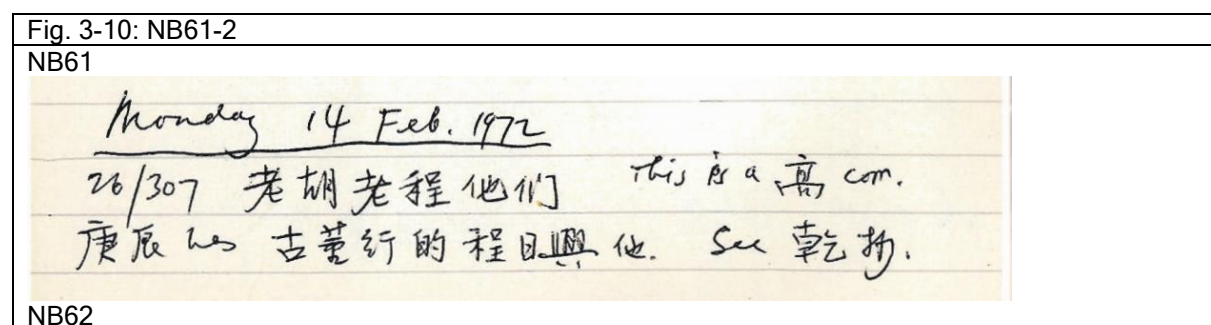 Fig. 3-10: NB61-2
NB61
Monday 14 Feb. 1972
26/307 老胡老程他们 This is a 高 com.
庚辰 has 古董行的程日興他. See 乾抄.
NB62